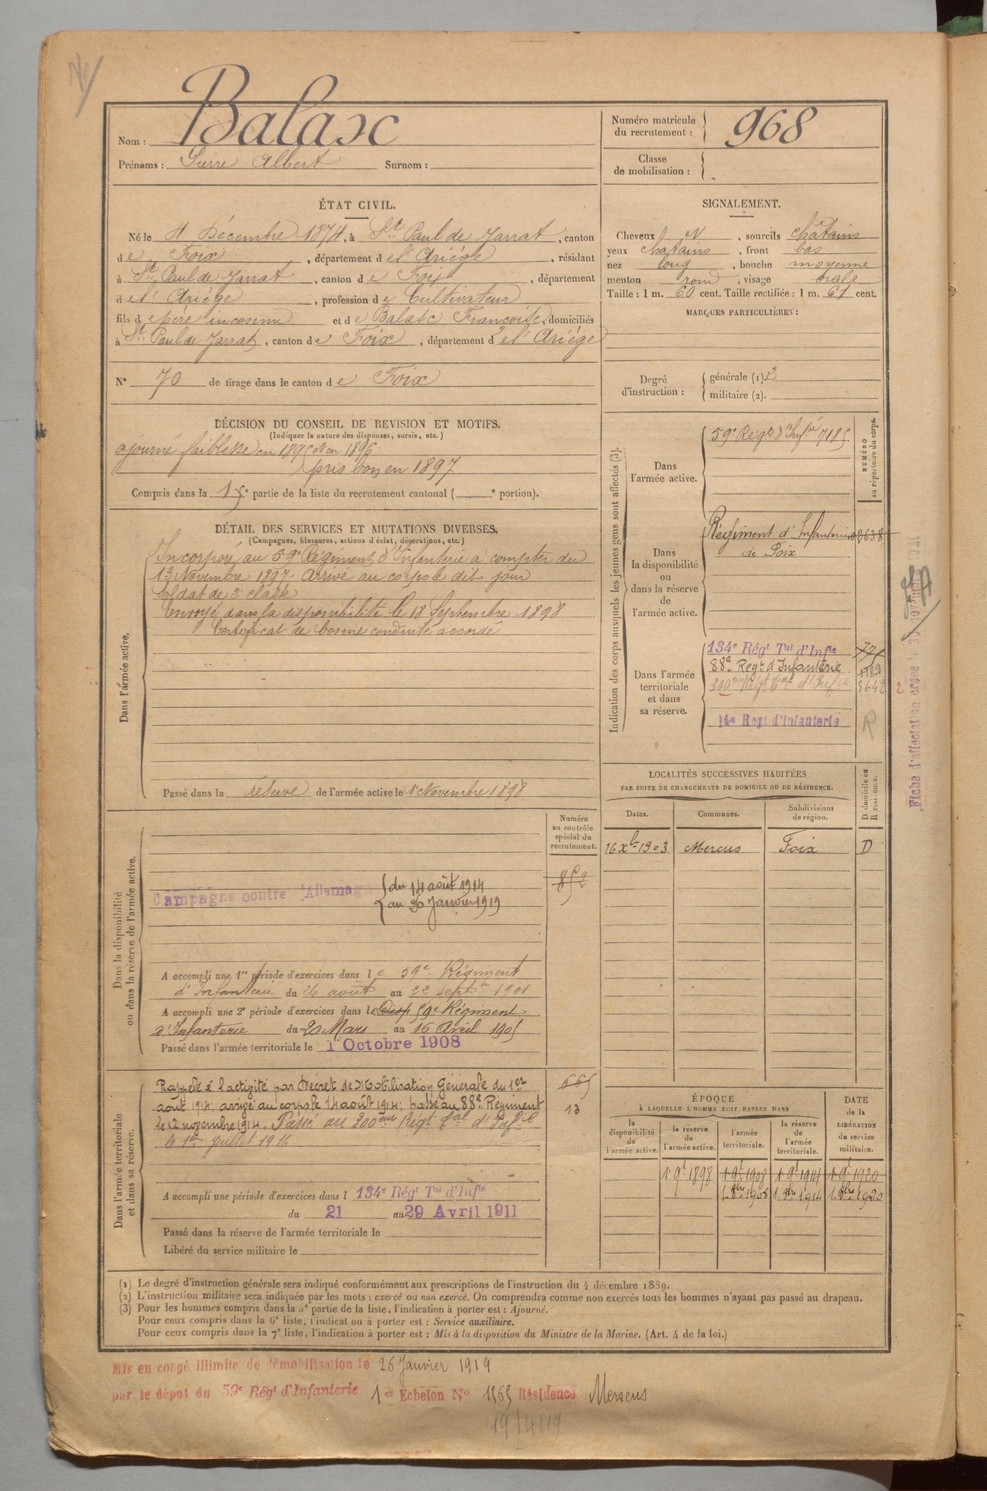 Nom : Balasc
Prénoms : Pierre Albert Surnom :
Numéro matricule du recrutement : 968
Classe de mobilisation :
ÉTAT CIVIL.
Né le 4 Décembre 1874, à St Paul de Jarrat, canton
de Foix, département de l'Ariége, résidant
à St Paul de Jarrat, canton de Foix, département
de l'Ariége, profession de Cultivateur
fils de père inconnu et de Balasc Françoise, domiciliés
à St Paul de Jarrat, canton de Foix, département de l'Ariége
N° 70 de tirage dans le canton de Foix
SIGNALEMENT.
Cheveux N, sourcils châtains
yeux châtains, front bas
nez long, bouche moyenne
menton rond, visage ovale
Taille : 1 m. 60 cent. Taille rectifiée : 1 m. 61 cent.
MARQUES PARTICULIÈRES :
Degré d'instruction : générale (1) 2
militaire (2).
DÉCISION DU CONSEIL DE REVISION ET MOTIFS.
(Indiquer la nature des dispenses, sursis, etc.)
ajourné faiblesse en 1895 et en 1896
pris bon en 1897
Compris dans la 1e partie de la liste du recrutement cantonal ( e portion).
DÉTAIL DES SERVICES ET MUTATIONS DIVERSES.
(Campagnes, blessures, actions d'éclat, décorations, etc.)
Dans l'armée active.
Incorporé au 59e Régiment d'Infanterie à compter du
13 Novembre 1897. Arrivé au corps le dit jour
soldat de 2e classe
Envoyé dans la disponibilité le 18 Septembre 1898
Certificat de bonne conduite accordé
Passé dans la réserve de l'armée active le 1 Novembre 1898
Indication des corps auxquels les jeunes gens sont affectés (3).
NUMÉRO au répertoire du corps.
Dans l'armée active.
59e Régt d'Infie 7115
Dans la disponibilité ou dans la réserve de l'armée active.
Régiment d'Infanterie 02638
de Foix
Dans l'armée territoriale et dans sa réserve.
134e Régt Tal d'Infie
88e Régt d'Infanterie
300me Régt tal d'Infie 5642
14e Régt d'Infanterie
R
LOCALITÉS SUCCESSIVES HABITÉES
PAR SUITE DE CHANGEMENTS DE DOMICILE OU DE RÉSIDENCE.
Dates. Communes. Subdivisions de région. D domicile ou R résidence.
16 Xbre 1903 Mercus Foix D
Dans la disponibilité ou dans la réserve de l'armée active.
Numéro au contrôle spécial du recrutement.
852
Campagne contre l'Allemagne du 14 août 1914
au 30 Janvier 1919
A accompli une 1re période d'exercices dans le 59e Régiment
d'Infanterie du 26 août au 22 septbre 1901
A accompli une 2e période d'exercices dans le 59e Régiment
d'Infanterie du 20 Mars au 16 Avril 1905
Passé dans l'armée territoriale le 1 Octobre 1908
Dans l'armée territoriale et dans sa réserve.
Rappelé à l'activité par Décret de Mobilisation Générale du 1er
août 1914, arrivé au corps le 14 août 1914; passé au 88e Régiment
le 12 novembre 1914. Passé au 300me Régt tal d'Inf.ie
le 1er juillet 1916
13
A accompli une période d'exercices dans l 134e Régt Tal d'Infie
du 21 au 29 Avril 1911
Passé dans la réserve de l'armée territoriale le
Libéré du service militaire le
ÉPOQUE
À LAQUELLE L'HOMME DOIT PASSER DANS
la disponibilité de l'armée active. la réserve de l'armée active. l'armée territoriale. la réserve de l'armée territoriale.
DATE de la LIBÉRATION du service militaire.
1 9e 1898 1 9e 1908 1 9e 1914 1 9e 1920
1 8bre 1908 1 8bre 1914 1 8bre 1920
(1) Le degré d'instruction générale sera indiqué conformément aux prescriptions de l'instruction du 4 décembre 1889.
(2) L'instruction militaire sera indiquée par les mots : exercé ou non exercé. On comprendra comme non exercés tous les hommes n'ayant pas passé au drapeau.
(3) Pour les hommes compris dans la 2e partie de la liste, l'indication à porter est : Ajourné.
Pour ceux compris dans la 6e liste, l'indication à porter est : Service auxiliaire.
Pour ceux compris dans la 7e liste, l'indication à porter est : Mis à la disposition du Ministre de la Marine. (Art. 4 de la loi.)
Mis en congé illimité de démobilisation le 26 Janvier 1919
par le dépôt du 59e Régt d'Infanterie 1er Echelon N° 1565 Résidence Mercus
19/4/19